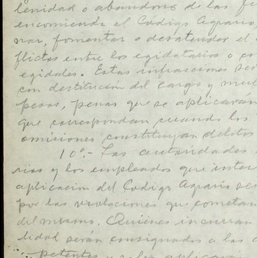 lenidad o abandono de las
encomienda el Codigo Agrario
var, fomentar o desatender el
flictos entre los egidatarios o
egidales. Estas infracciones
con destitución del cargo y
pesos, penas que se aplicaran
que correspondan cuando los
omisiones constituyan delitos
10o.- Las autoridades
rias y los empleados que
aplicacion del Codigo Agrario
por las violaciones que cometan
del mismo. Quienes incurran
lidad serán consignados a las
petentes y se les aplicaran